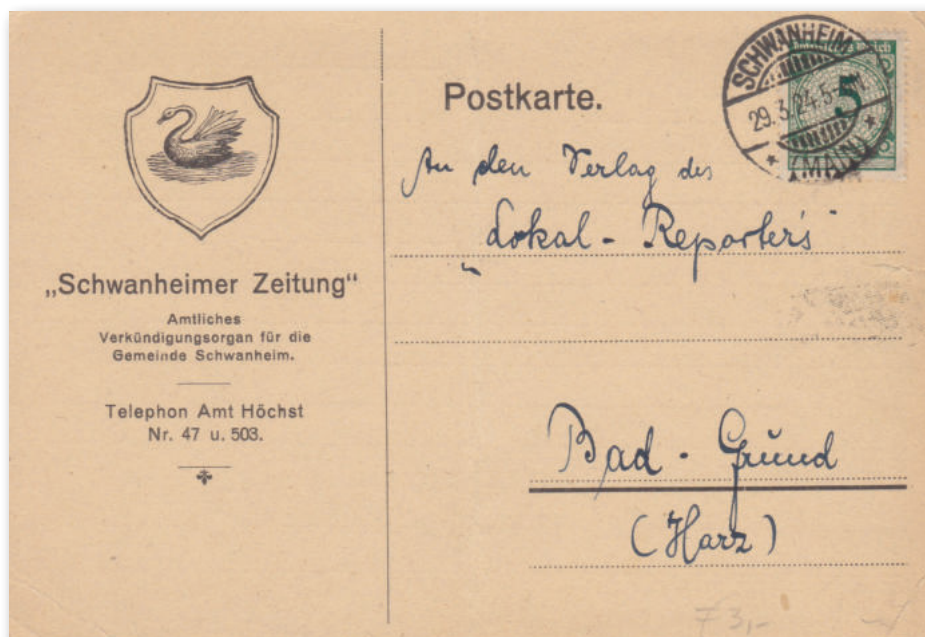 „Schwanheimer Zeitung“
Amtliches
Verkündigungsorgan für die
Gemeinde Schwanheim.
Telephon Amt Höchst
Nr. 47 u. 503.
Postkarte.
SCHWANHEIM
29.3.24.5-
(MAIN)
5
An den Verlag des
„Lokal-Reporter's
Bad-Grund
(Harz)
F 3,-